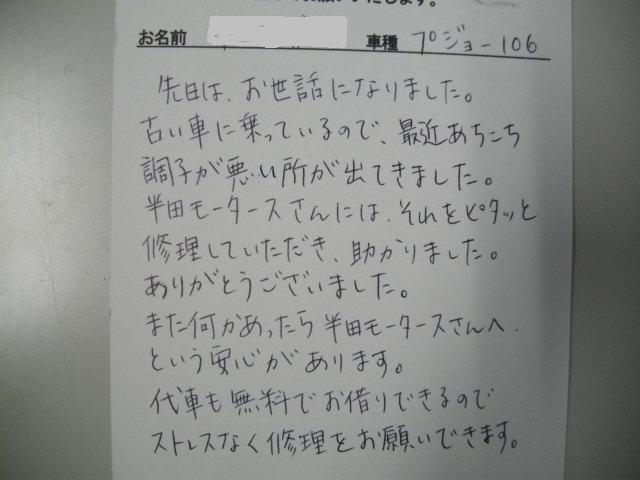 します。
お名前 車種 プジョー106
先日は、お世話になりました。
古い車に乗っているので、最近あちこち
調子が悪い所が出てきました。
半田モータースさんには、それをピタッと
修理していただき、助かりました。
ありがとうございました。
また何かあったら半田モータースさんへ、
という安心があります。
代車も無料でお借りできるので
ストレスなく修理をお願いできます。